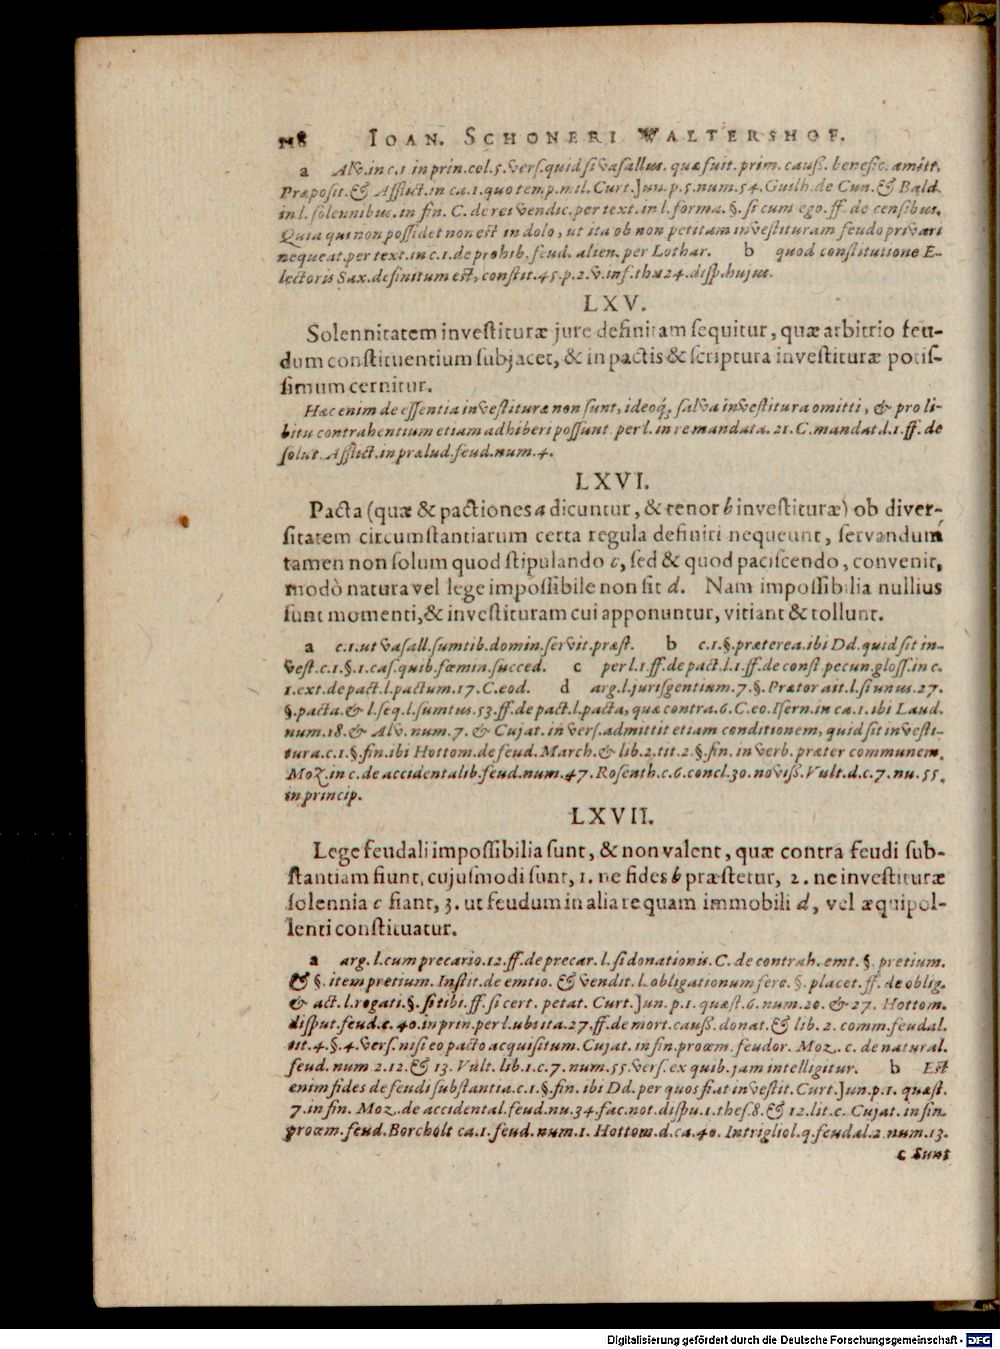 118 IOAN. SCHONERI WALTERSHOF.
a Alv. in c. 1. in prin. col. 5. vers. quid si vasallus. quæ fuit. prim. causs. benefic. amitt.
Præposit. & Afflict. in ca. 1. quo temp. mil. Curt. Jun. p. 5. num. 54. Guilh. de Cun. & Bald.
in l. solennibus. in fin. C. de rei vendic. per text. in l. forma. §. si cum ego. ff. de censibus.
Quia qui non possidet non est in dolo, ut ita ob non petitam investituram feudo privari
nequeat. per text. in c. 1. de prohib. feud. alien. per Lothar. b quod constitutione E-
lectoris Sax. definitum est, constit. 45. p. 2. v. inf. th. 24. disp. hujus.
LXV.
Solennitatem investituræ jure definitam sequitur, quæ arbitrio feu-
dum constituentium subjacet, & in pactis & scriptura investituræ potis-
simum cernitur.
Hæc enim de essentia investituræ non sunt, ideoq; salva investitura omitti, & pro li-
bitu contrahentium etiam adhiberi possunt per l. in re mandata. 21. C. mandat. l. 1. ff. de
solut. Afflict. in prælud. feud. num. 4.
LXVI.
Pacta (quæ & pactiones a dicuntur, & tenor b investituræ) ob diver-
sitatem circumstantiarum certa regula definiri nequeunt, servandum
tamen non solum quod stipulando c, sed & quod paciscendo, convenit,
modò natura vel lege impossibile non sit d. Nam impossibilia nullius
sunt momenti, & investituram cui apponuntur, vitiant & tollunt.
a c. 1. ut vasall. sumtib. domin. servit. præst. b c. 1. §. præterea. ibi Dd. quid sit in-
vest. c. 1. §. 1. cas. quib. fœmin. succed. c per l. 1. ff. de pact. l. 1. ff. de const. pecun. gloss. in c.
1. ext. de pact. l. pactum. 17. C. eod. d arg. l. jurisgentium. 7. §. Prætor ait. l. si unus. 27.
§. pacta. & l. seq. l. sumtus. 53. ff. de pact. l. pacta, quæ contra. 6. C. eo. Isern. in ca. 1. ibi Laud.
num. 18. & Alv. num. 7. & Cujat. in vers. admittit etiam conditionem, quid sit investi-
tura. c. 1. §. fin. ibi Hottom. de feud. March. & lib. 2. tit. 2. §. fin. in verb. præter communem.
Moz. in c. de accidentalib. feud. num. 47. Rosenth. c. 6. concl. 30. noviss. Vult. d. c. 7. nu. 55.
in princip.
LXVII.
Lege feudali impossibilia sunt, & non valent, quæ contra feudi sub-
stantiam fiunt, cujusmodi sunt, 1. ne fides b præstetur, 2. ne investituræ
solennia c fiant, 3. ut feudum in alia re quam immobili d, vel æquipol-
lenti constituatur.
a arg. l. cum precario. 12. ff. de precar. l. si donationis. C. de contrah. emt. §. pretium.
& §. item pretium. Instit. de emtio. & vendit. l. obligationum fere. §. placet. ff. de oblig.
& act. l. rogati. §. si tibi. ff. si cert. petat. Curt. Jun. p. 1. quæst. 6. num. 20. & 27. Hottom.
disput. feud. c. 40. in prin. per l. ubi ita. 27. ff. de mort. causs. donat. & lib. 2. comm. feudal.
tit. 4. §. 4. vers. nisi eo pacto acquisitum. Cujat. in fin. proœm. feudor. Moz. c. de natural.
feud. num 2. 12. & 13. Vult. lib. 1. c. 7. num. 55. vers. ex quib. jam intelligitur. b Est
enim fides de feudi substantia. c. 1. §. fin. ibi Dd. per quos fiat investit. Curt. Jun. p. 1. quæst.
7. in fin. Moz. de accidental. feud. nu. 34. fac. not. dispu. 1. thes. 8. & 12. lit. c. Cujat. in fin.
proœm. feud. Borcholt ca. 1. feud. num. 1. Hottom. d. ca. 40. Intrigliol. q. feudal. 2. num. 13.
c Sunt
Digitalisierung gefördert durch die Deutsche Forschungsgemeinschaft - DFG